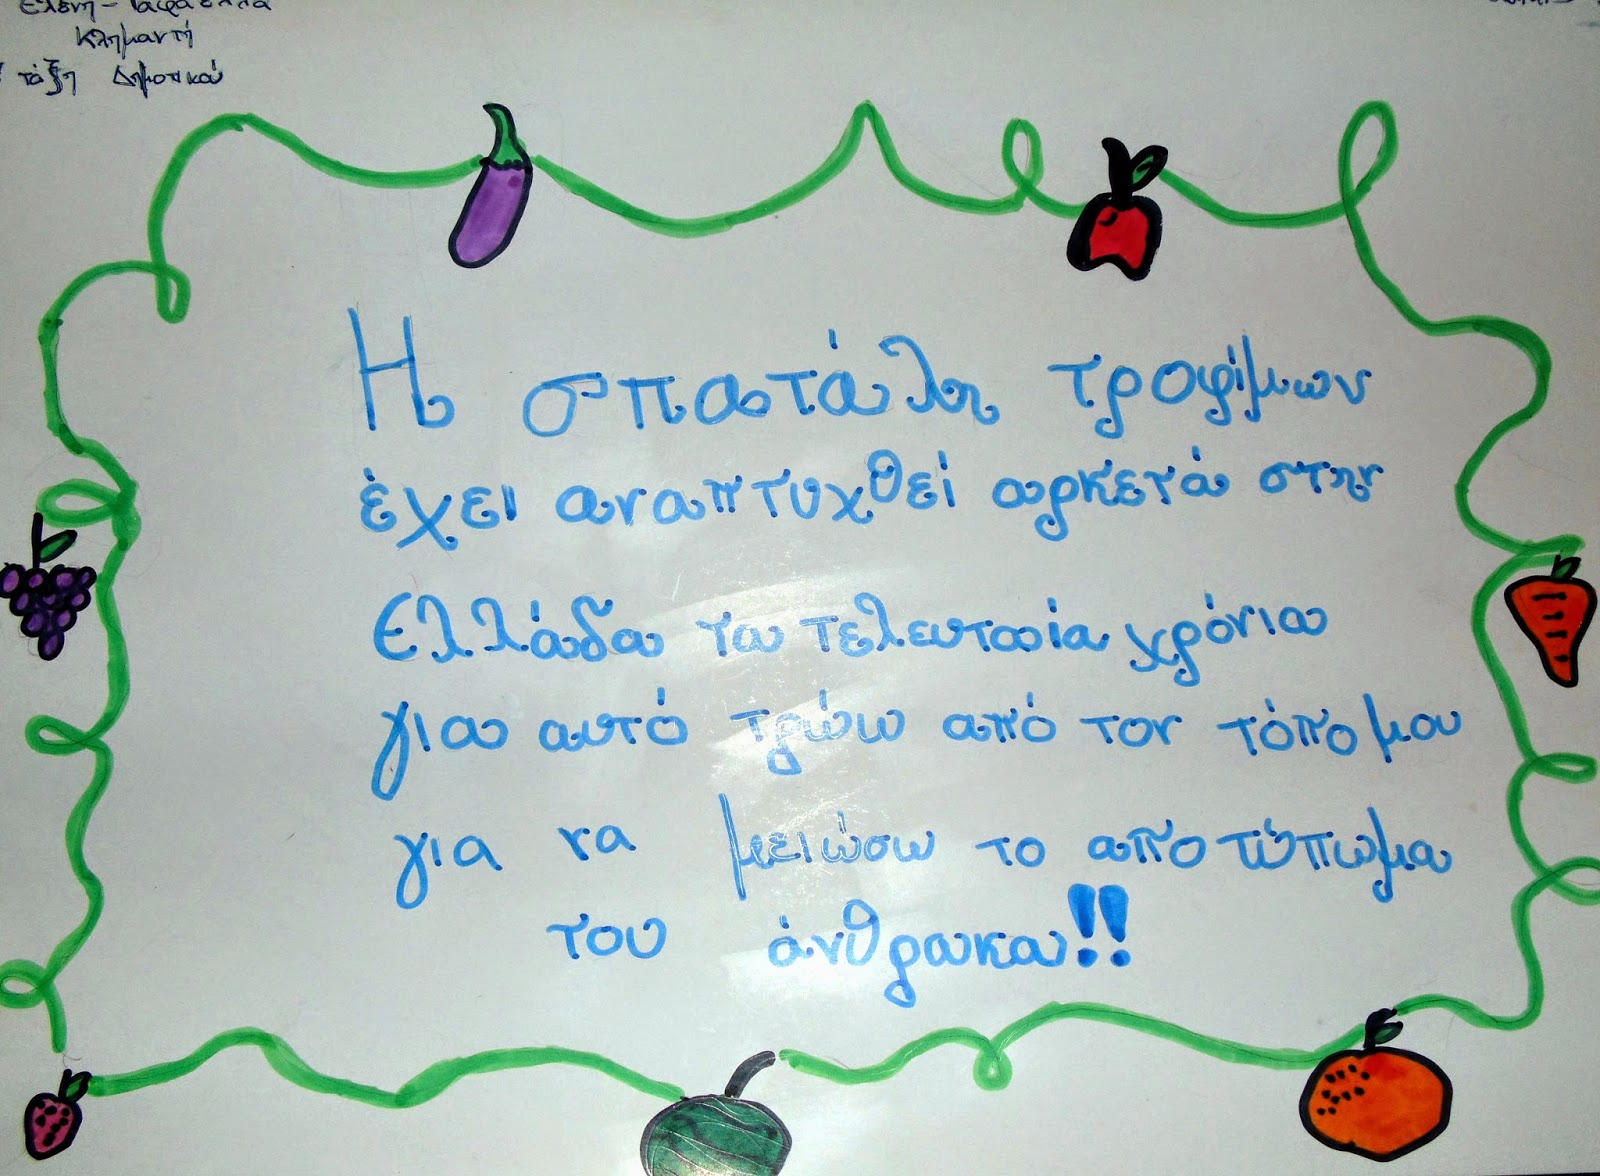 Ελένη - Ραφαέλλα
Κλημαντή
τάξη Δημοτικού
Η σπατάλη τροφίμων
έχει αναπτυχθεί αρκετά στην
Ελλάδα τα τελευταία χρόνια
για αυτό τρώω από τον τόπο μου
για να μειώσω το αποτύπωμα
του άνθρακα!!